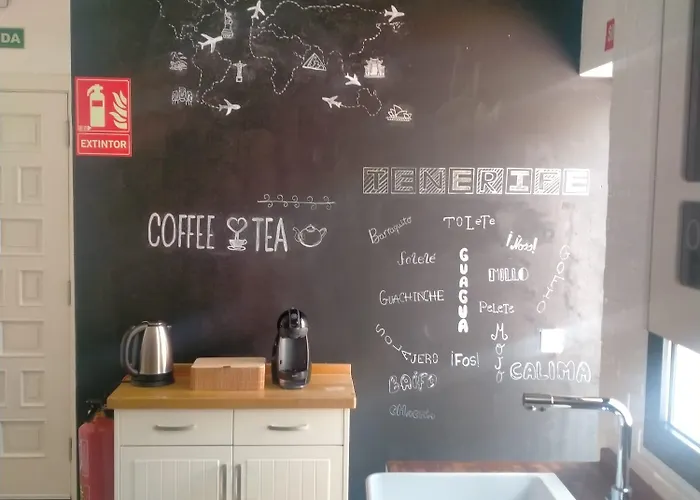 DA
EXTINTOR
COFFEE TEA
TENERIFE
Barraquito
TOLETE
¡Foss!
fotete
GUAGUA
MILLO
GOFIO
GUACHINCHE
PELETE
SOTAJERO
¡FOS!
MOJO
BAIFO
CALIMA